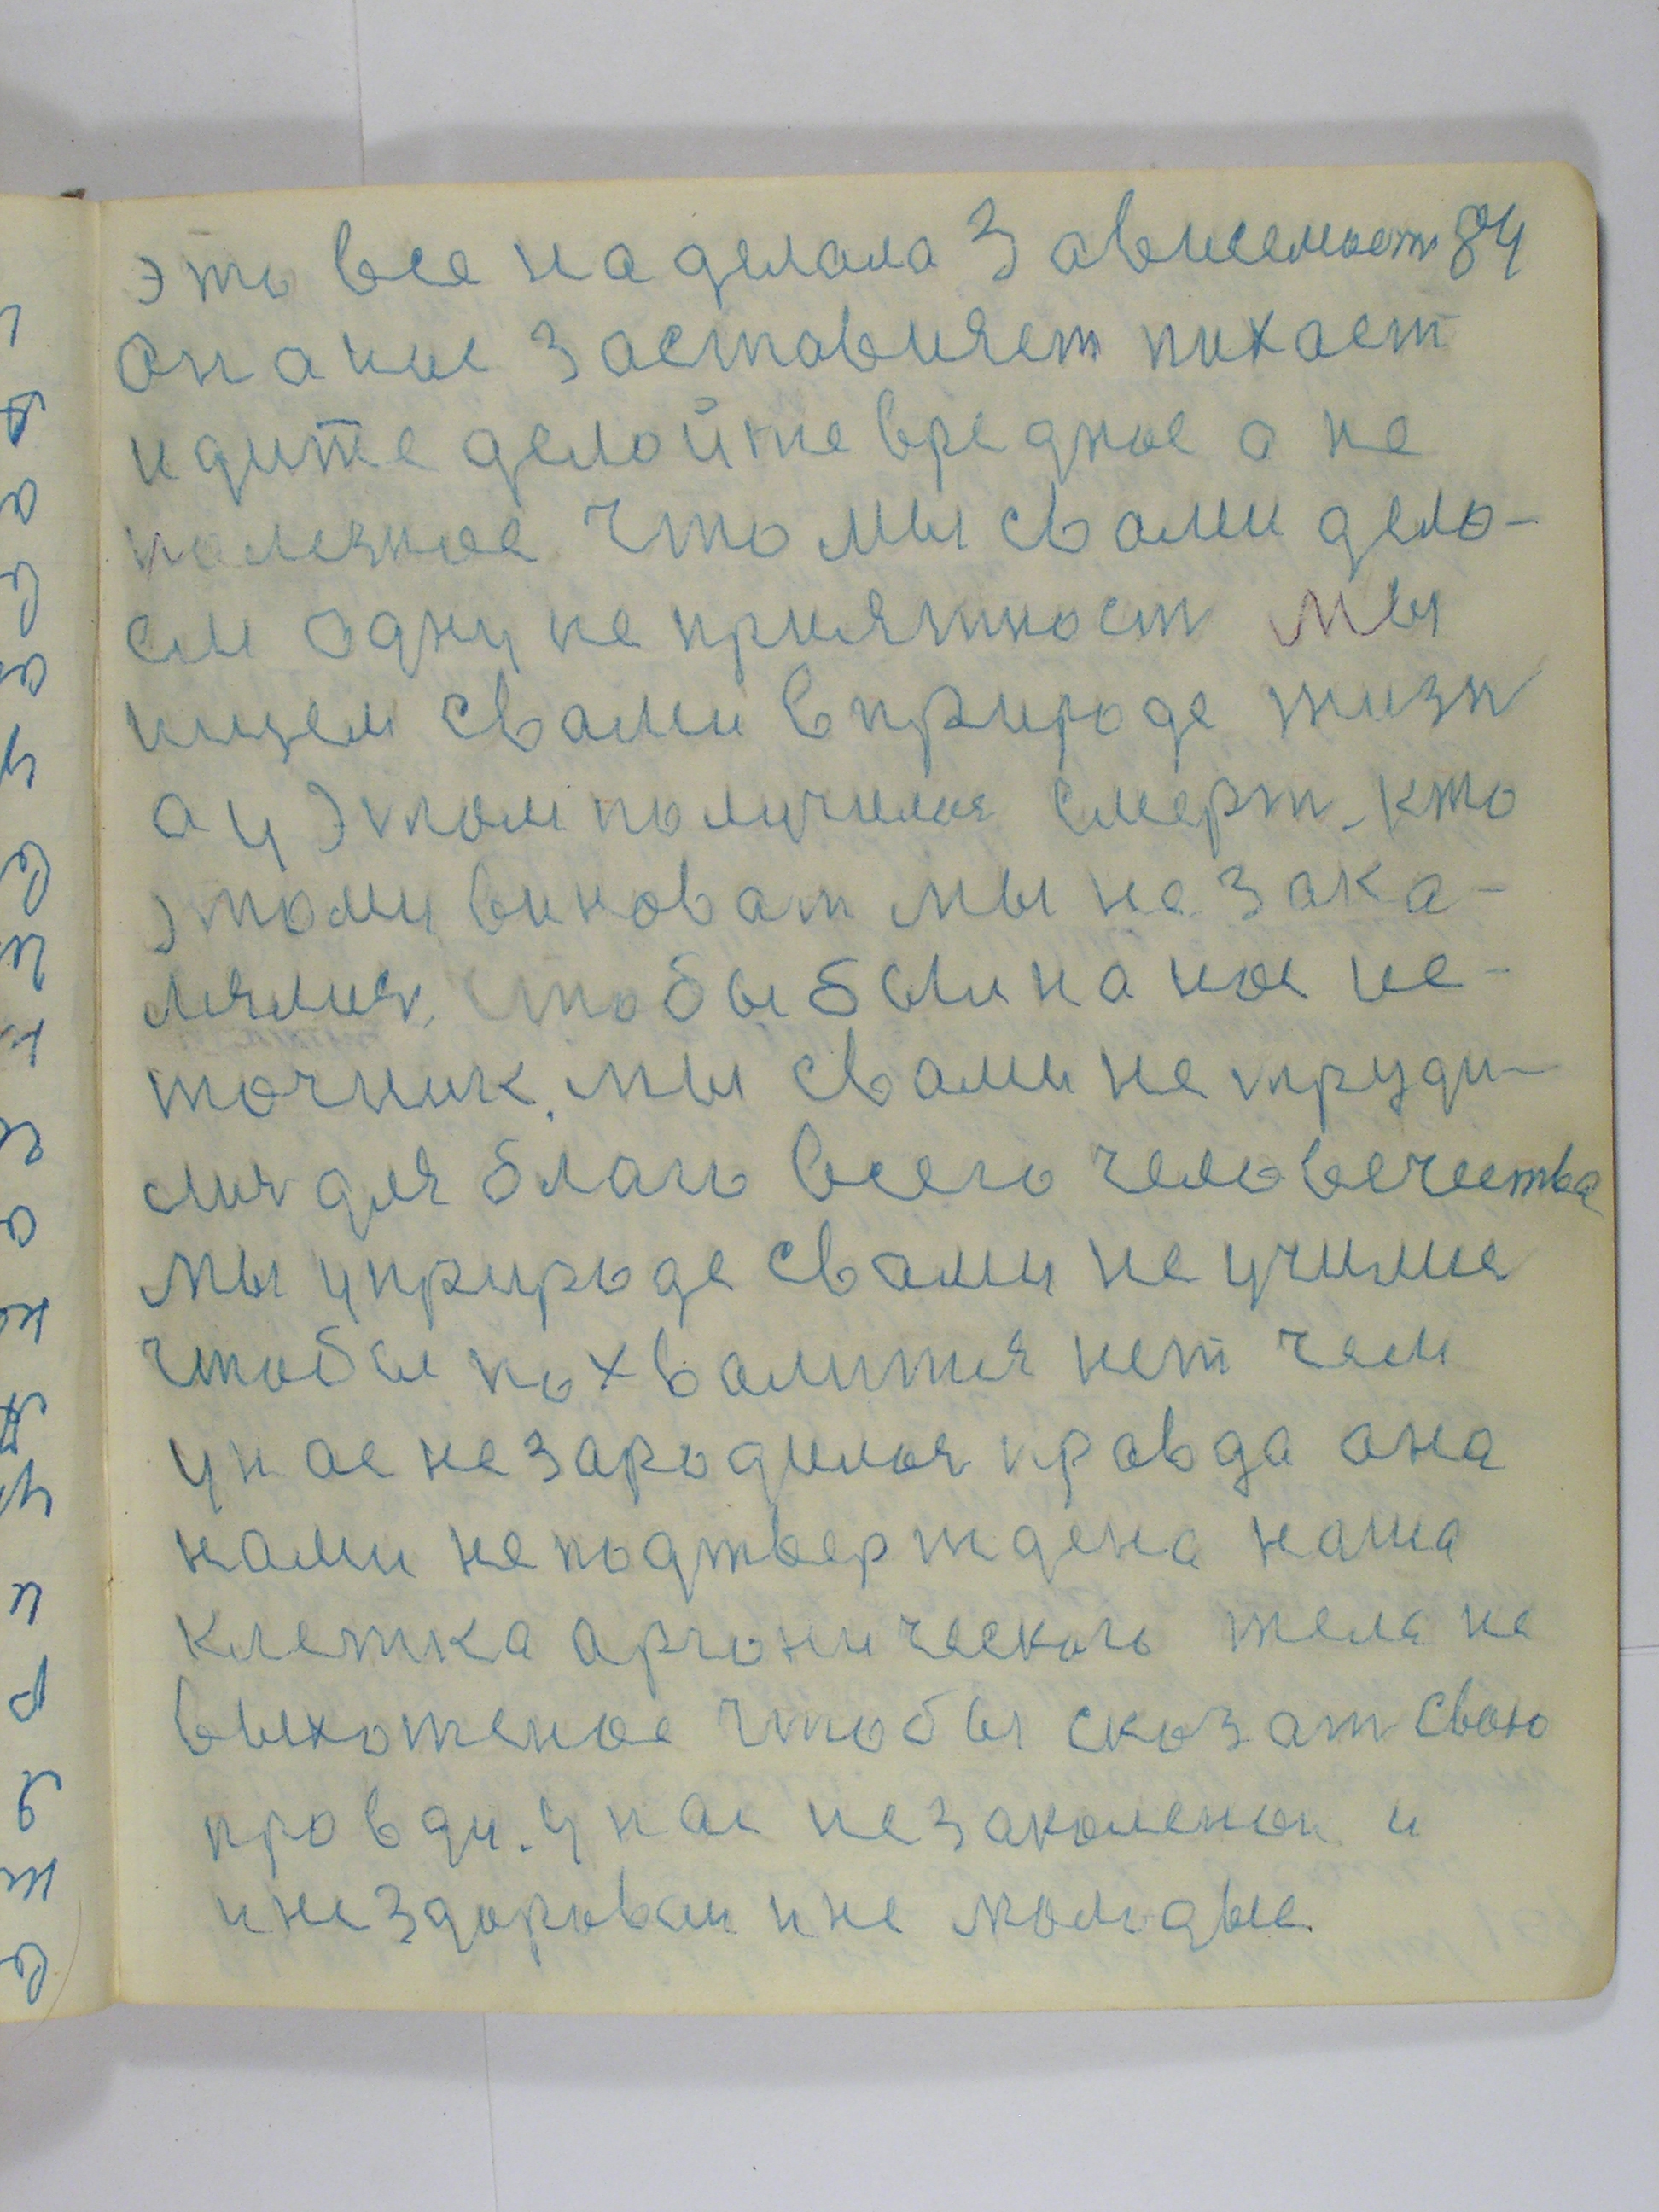 это все наделала Зависемост 84
Она нас заставляет пихает
идите делойте вредное а не
полезное Что мы свами дела-
ем одну неприятност мы
ищем свами вприроде жизн
а у этом получилася смерт. кто
этому виноват мы не зака-
лялися чтобы были на нас ис-
точник. мы свами не труди-
лися для благо всего человечества
мы уприроде свами не училися
чтобы похвалится нет чем
унас не зародилося правда она
нами не подтверждена наша
клетка арганического тела не
выхоженое чтобы сказат свою
правду. унас не закаленои и
и не здоровыи и не молодые.